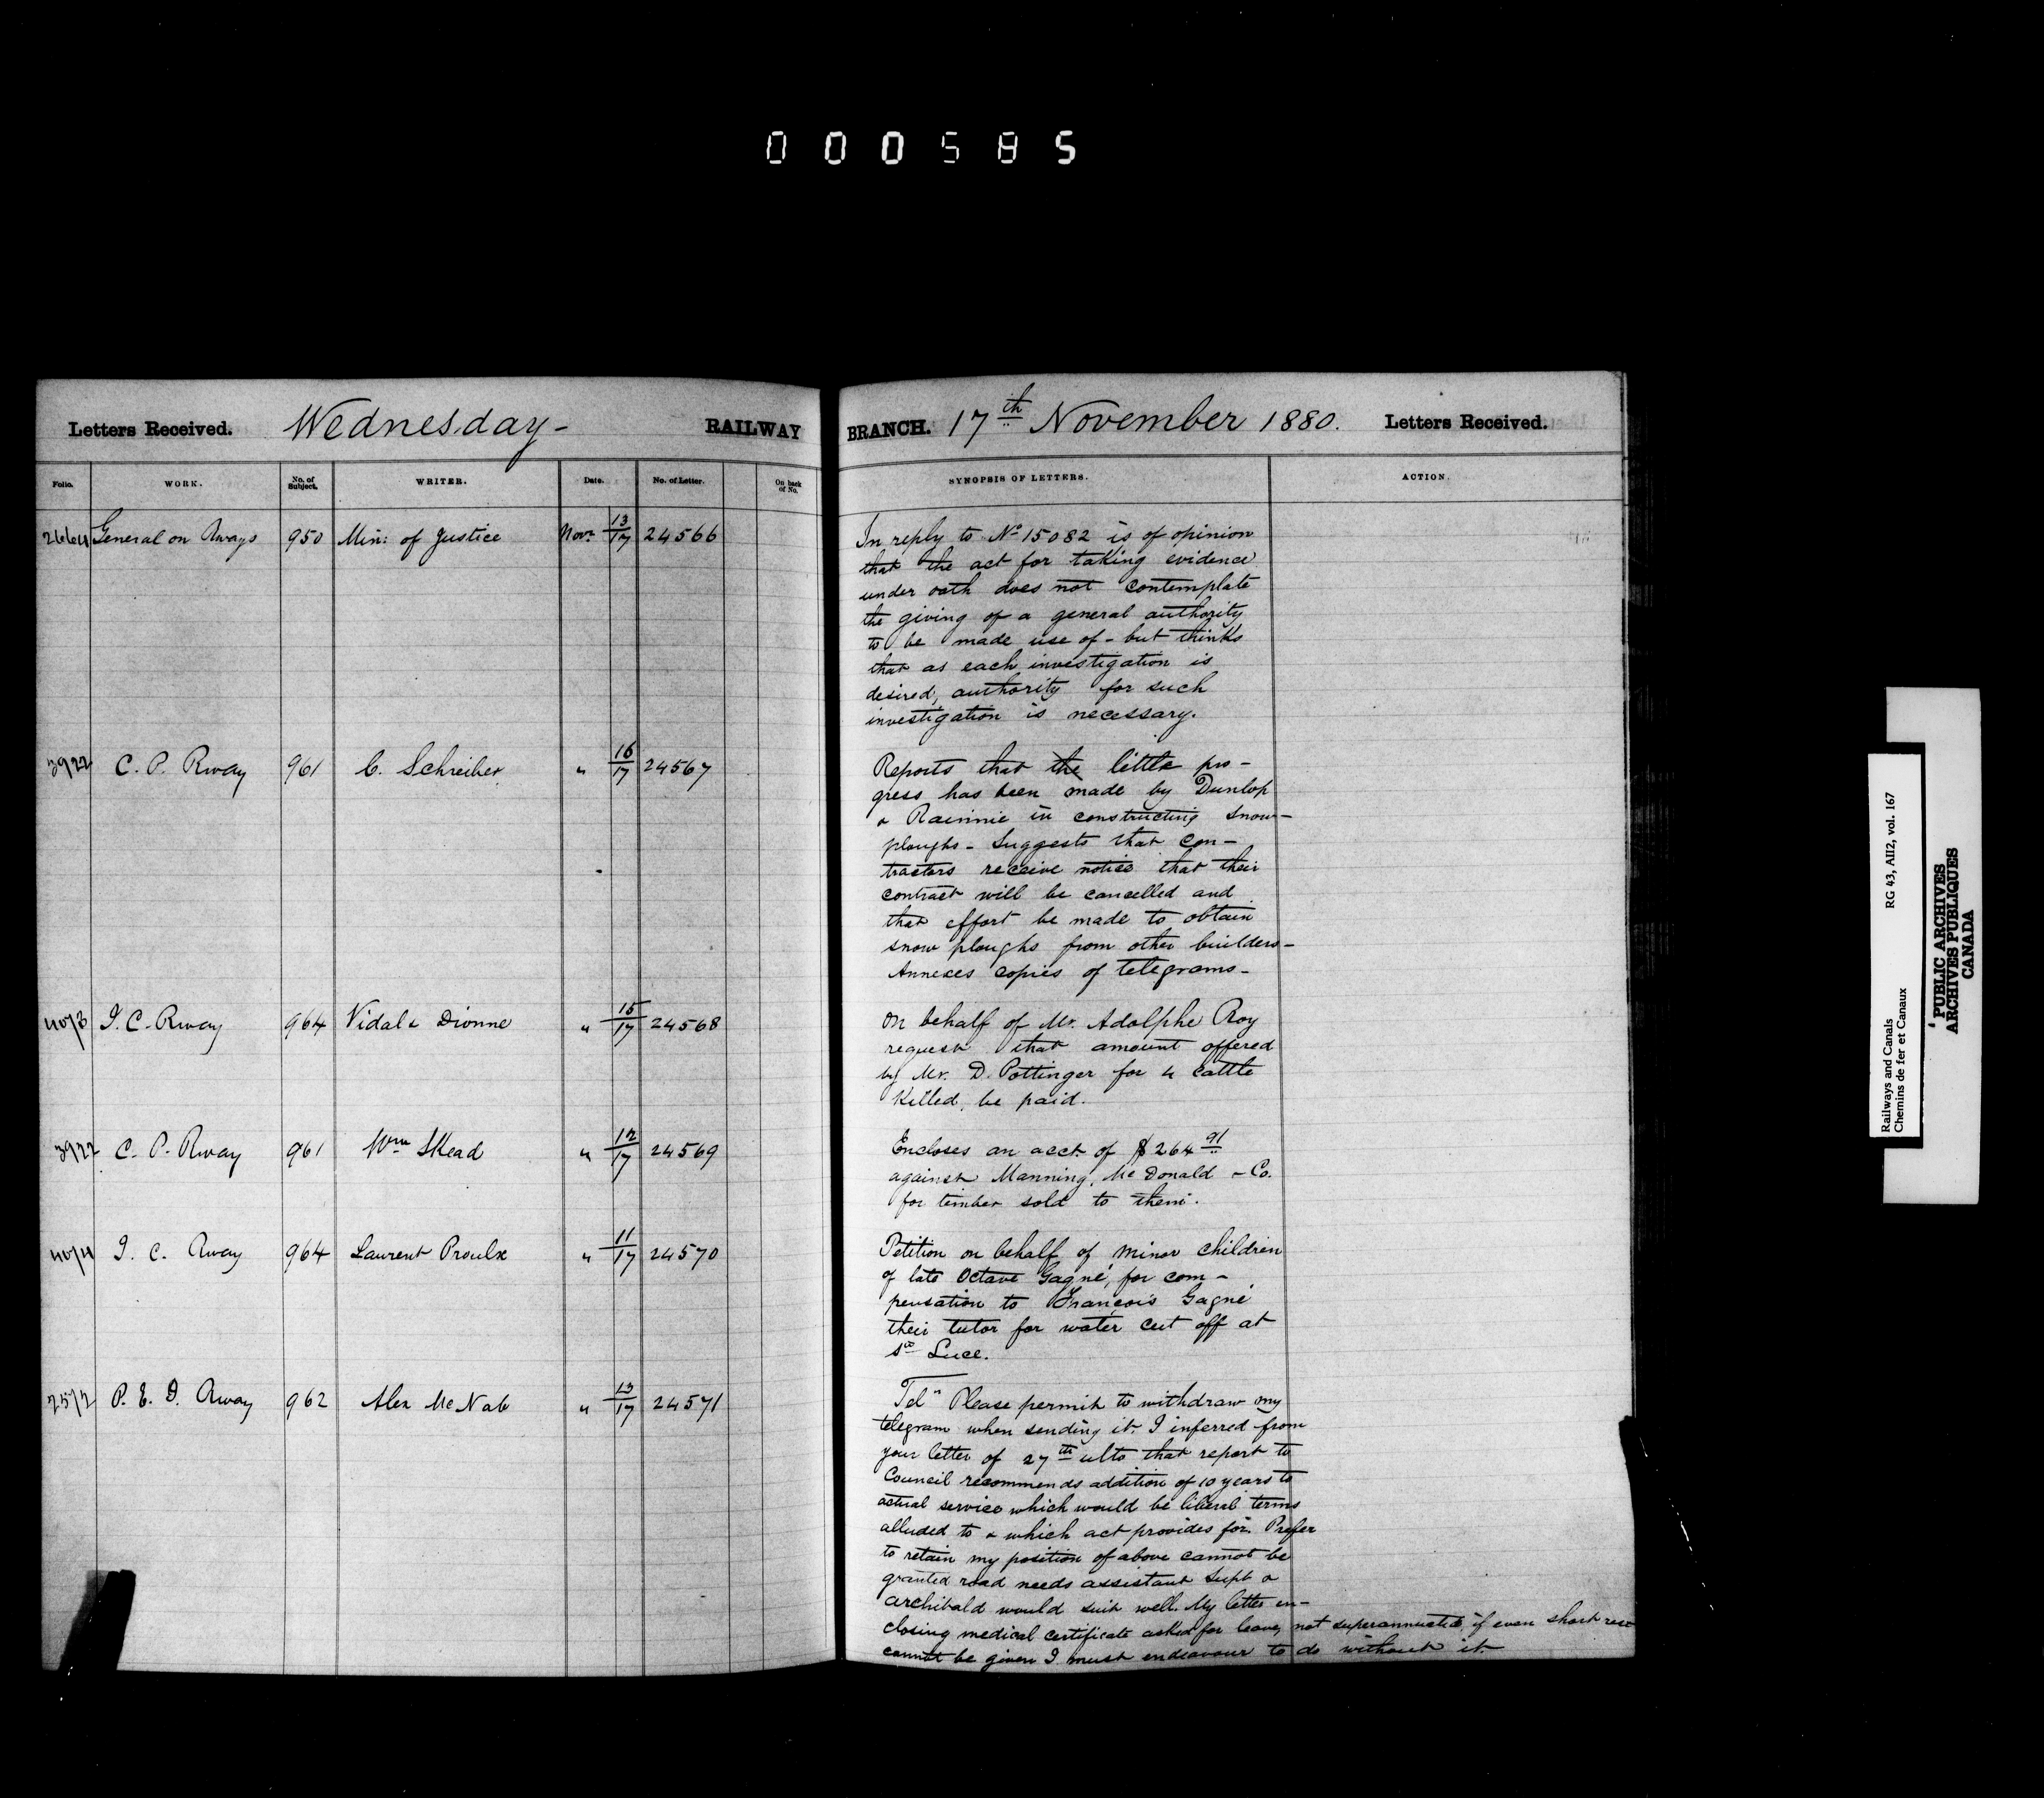 000585
Letters Received. Wednesday - RAILWAY BRANCH. 17th November 1880. Letters Received.
Folio. WORK. No. of Subject. WRITER. Date. No. of Letter. On back of No. SYNOPSIS OF LETTERS. ACTION.
2664 General on Rways 950 Min: of Justice Novr 13/17 24566
In reply to No 15082 is of opinion
that the act for taking evidence
under oath does not contemplate
the giving of a general authority
to be made use of - but thinks
that as each investigation is
desired, authority for such
investigation is necessary.
3922 C. P. Rway 961 C. Schreiber " 16/17 24567
Reports that the little pro-
gress has been made by Dunlop
& Rainnie in constructing snow-
ploughs - Suggests that con-
tractors receive notice that their
contract will be cancelled and
that effort be made to obtain
snow ploughs from other builders -
Annexes copies of telegrams -
4073 I. C. Rway 964 Vidal & Dionne " 15/17 24568
On behalf of Mr. Adolphe Roy
request that amount offered
by Mr. D. Pottinger for 4 cattle
killed, be paid.
3922 C. P. Rway 961 Wm Skead " 12/17 24569
Encloses an acct. of $264 91
against Manning, McDonald & Co.
for timber sold to them.
4074 I. C. Rway 964 Laurent Proulx " 11/17 24570
Petition on behalf of minor children
of late Octave Gagné, for com-
pensation to François Gagné
their tutor for water cut off at
Ste Luce.
2572 P. E. I. Rway 962 Alex McNab " 13/17 24571
Tel" Please permit to withdraw my
telegram when sending it. I inferred from
your letter of 27th ulto that report to
Council recommends addition of 10 years to
actual service which would be liberal terms
alluded to & which act provides for. Prefer
to retain my position if above cannot be
granted road needs assistant Supt &
Archibald would suit well. My letter en-
closing medical certificate asked for leave, not superannuated, if even short rest
cannot be given I must endeavour to do without it.
Railways and Canals RG 43, AII2, vol. 167
Chemins de fer et Canaux
PUBLIC ARCHIVES
ARCHIVES PUBLIQUES
CANADA